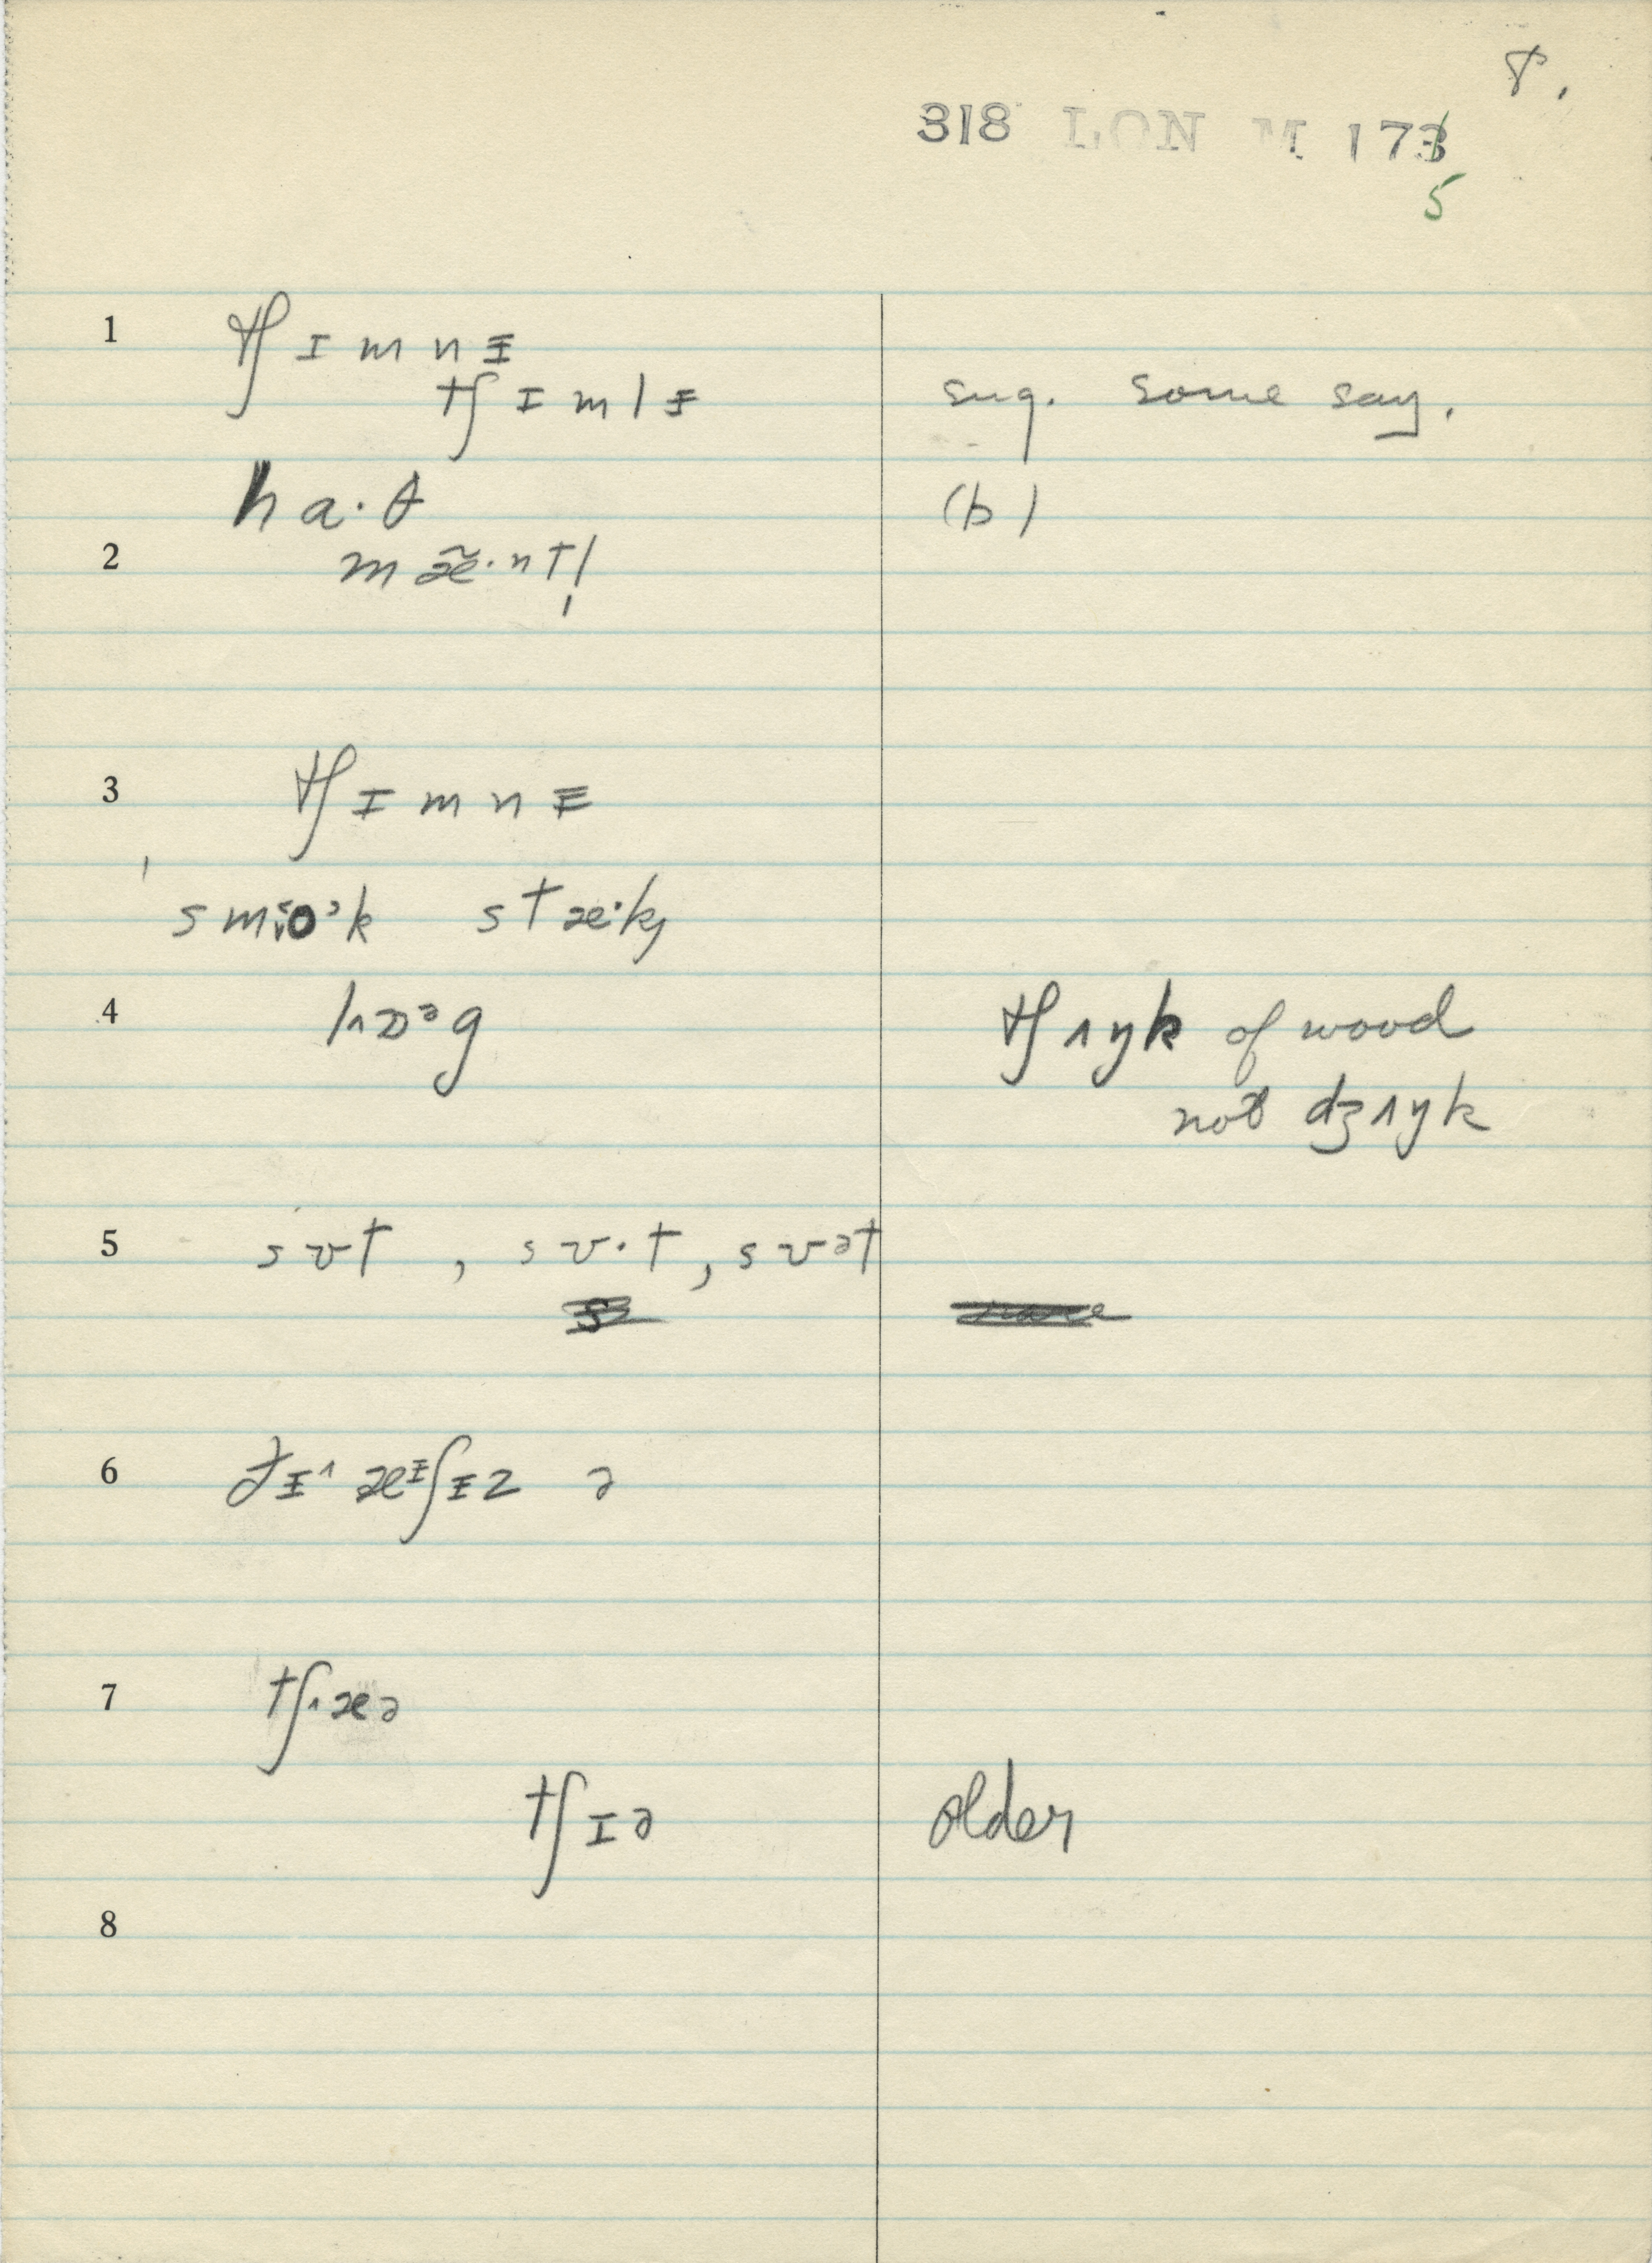 8.
318 LON M 173
5
1 tʃɪmnɪ̵
tʃɪmlɪ̵ sug. some say.
ha·θ (b)
2 mæ̃·ntl̩
3 tʃɪmnɪ̵
smo˃k stæ·k,
4 lɒᵊg tʃʌŋk of wood
not dʒʌŋk
5 sʊt , sʊ·t, sʊət
6 ðɪ̵^ æɪ̵ʃɪ̵z ə
7 tʃæə
tʃɪə older
8